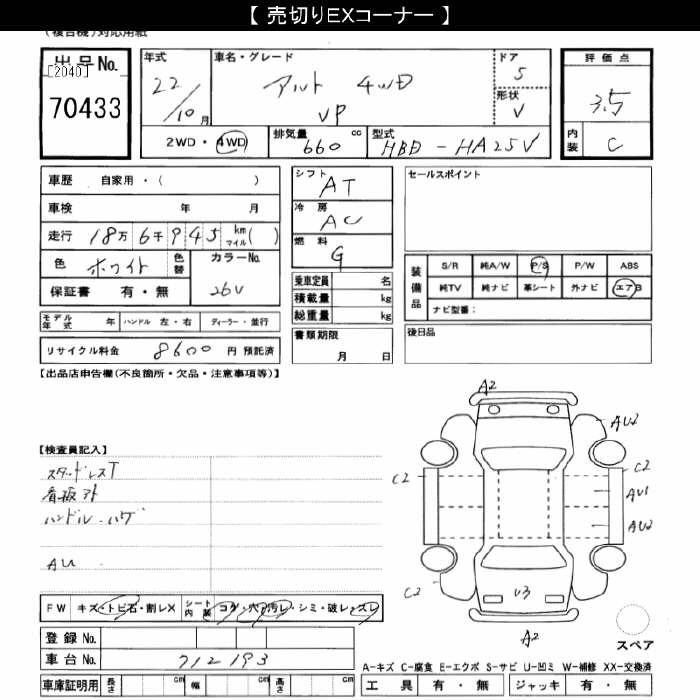 【 売切りEXコーナー 】
(複合機)対応用紙
出品No.
[2040]
70433
年式
22/10月
車名・グレード
アルト 4WD
VP
ドア
5
形状
V
評価点
3.5
内装
C
2WD・4WD
排気量 660 cc
型式 HBD-HA25V
車歴 自家用・( )
車検 年 月
走行 18万6千945 km マイル( )
色 ホワイト 色替
カラーNo. 26V
保証書 有・無
シフト AT
冷房 AC
燃料 G
乗車定員 名
積載量 kg
総重量 kg
セールスポイント
装備品
S/R 純A/W P/S P/W ABS
純TV 純ナビ 革シート 外ナビ エアB
ナビ型番:
モデル年式 年 ハンドル 左・右 ディーラー・並行
書類期限 月 日
後日品
リサイクル料金 8600 円 預託済
【出品店申告欄(不良箇所・欠品・注意事項等)】
【検査員記入】
スタッドレスT
看板アト
ハンドル・ハゲ
AU
A2
AU2
C2
C2
AU1
AU2
C2
U3
A2
FW キズ・トビ石・割レX
シート内装 コゲ・穴・汚レ・シミ・破レ・スレ
登録No.
車台No. 712193
スペア
A-キズ C-腐食 E-エクボ S-サビ U-凹ミ W-補修 XX-交換済
車庫証明用 長さ cm 幅 cm 高さ cm
工具 有・無 ジャッキ 有・無